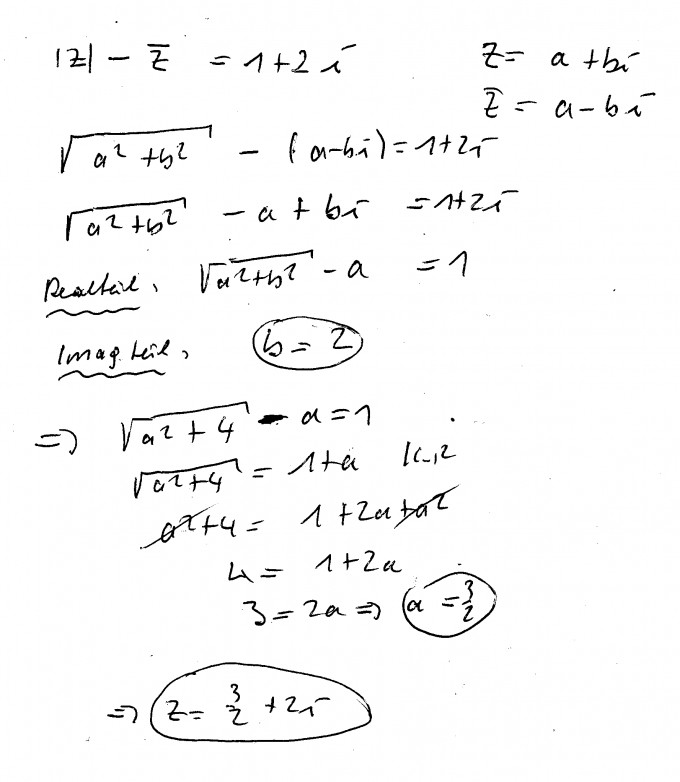 |z| - z̅ = 1+2i z = a+bi
z̅ = a-bi
√(a²+b²) - (a-bi) = 1+2i
√(a²+b²) - a + bi = 1+2i
Realteil: √(a²+b²) - a = 1
Imag. teil: b = 2
=> √(a²+4) - a = 1
√(a²+4) = 1+a |(..)²
a²+4 = 1+2a+a²
4 = 1+2a
3 = 2a => a = 3/2
=> z = 3/2 + 2i